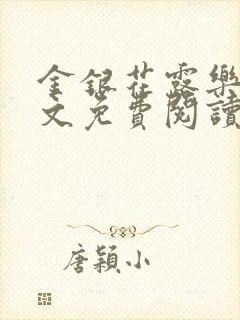 金銀花露樂
文免費閱讀
唐穎小